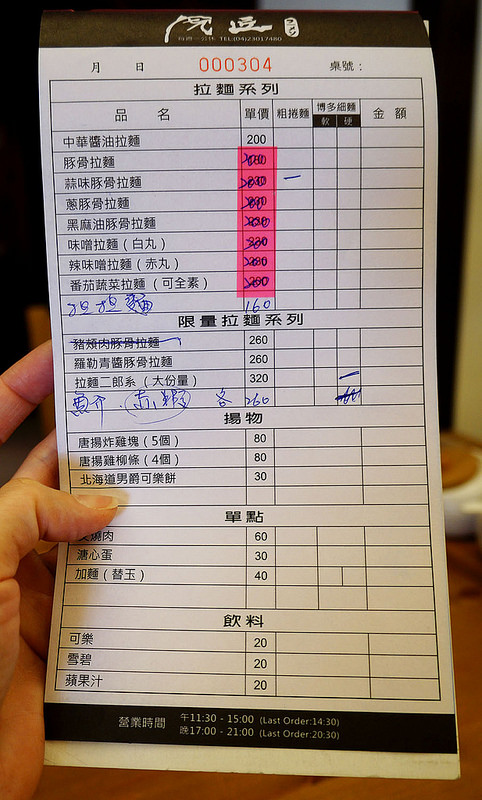 每週一公休 TEL:(04)23017480
月 日 000304 桌號：
拉麵系列
品 名 單價 粗捲麵 博多細麵 金 額
軟 硬
中華醬油拉麵 200
豚骨拉麵
蒜味豚骨拉麵
蔥豚骨拉麵
黑麻油豚骨拉麵
味噌拉麵（白丸）
辣味噌拉麵（赤丸）
番茄蔬菜拉麵（可全素）
担担麵 160
限量拉麵系列
豬頰肉豚骨拉麵 260
羅勒青醬豚骨拉麵 260
拉麵二郎系（大份量） 320
魚介．赤蝦 各 260
揚物
唐揚炸雞塊（5個） 80
唐揚雞柳條（4個） 80
北海道男爵可樂餅 30
單點
叉燒肉 60
溏心蛋 30
加麵（替玉） 40
飲料
可樂 20
雪碧 20
蘋果汁 20
營業時間 午11:30 - 15:00 (Last Order:14:30)
晚17:00 - 21:00 (Last Order:20:30)